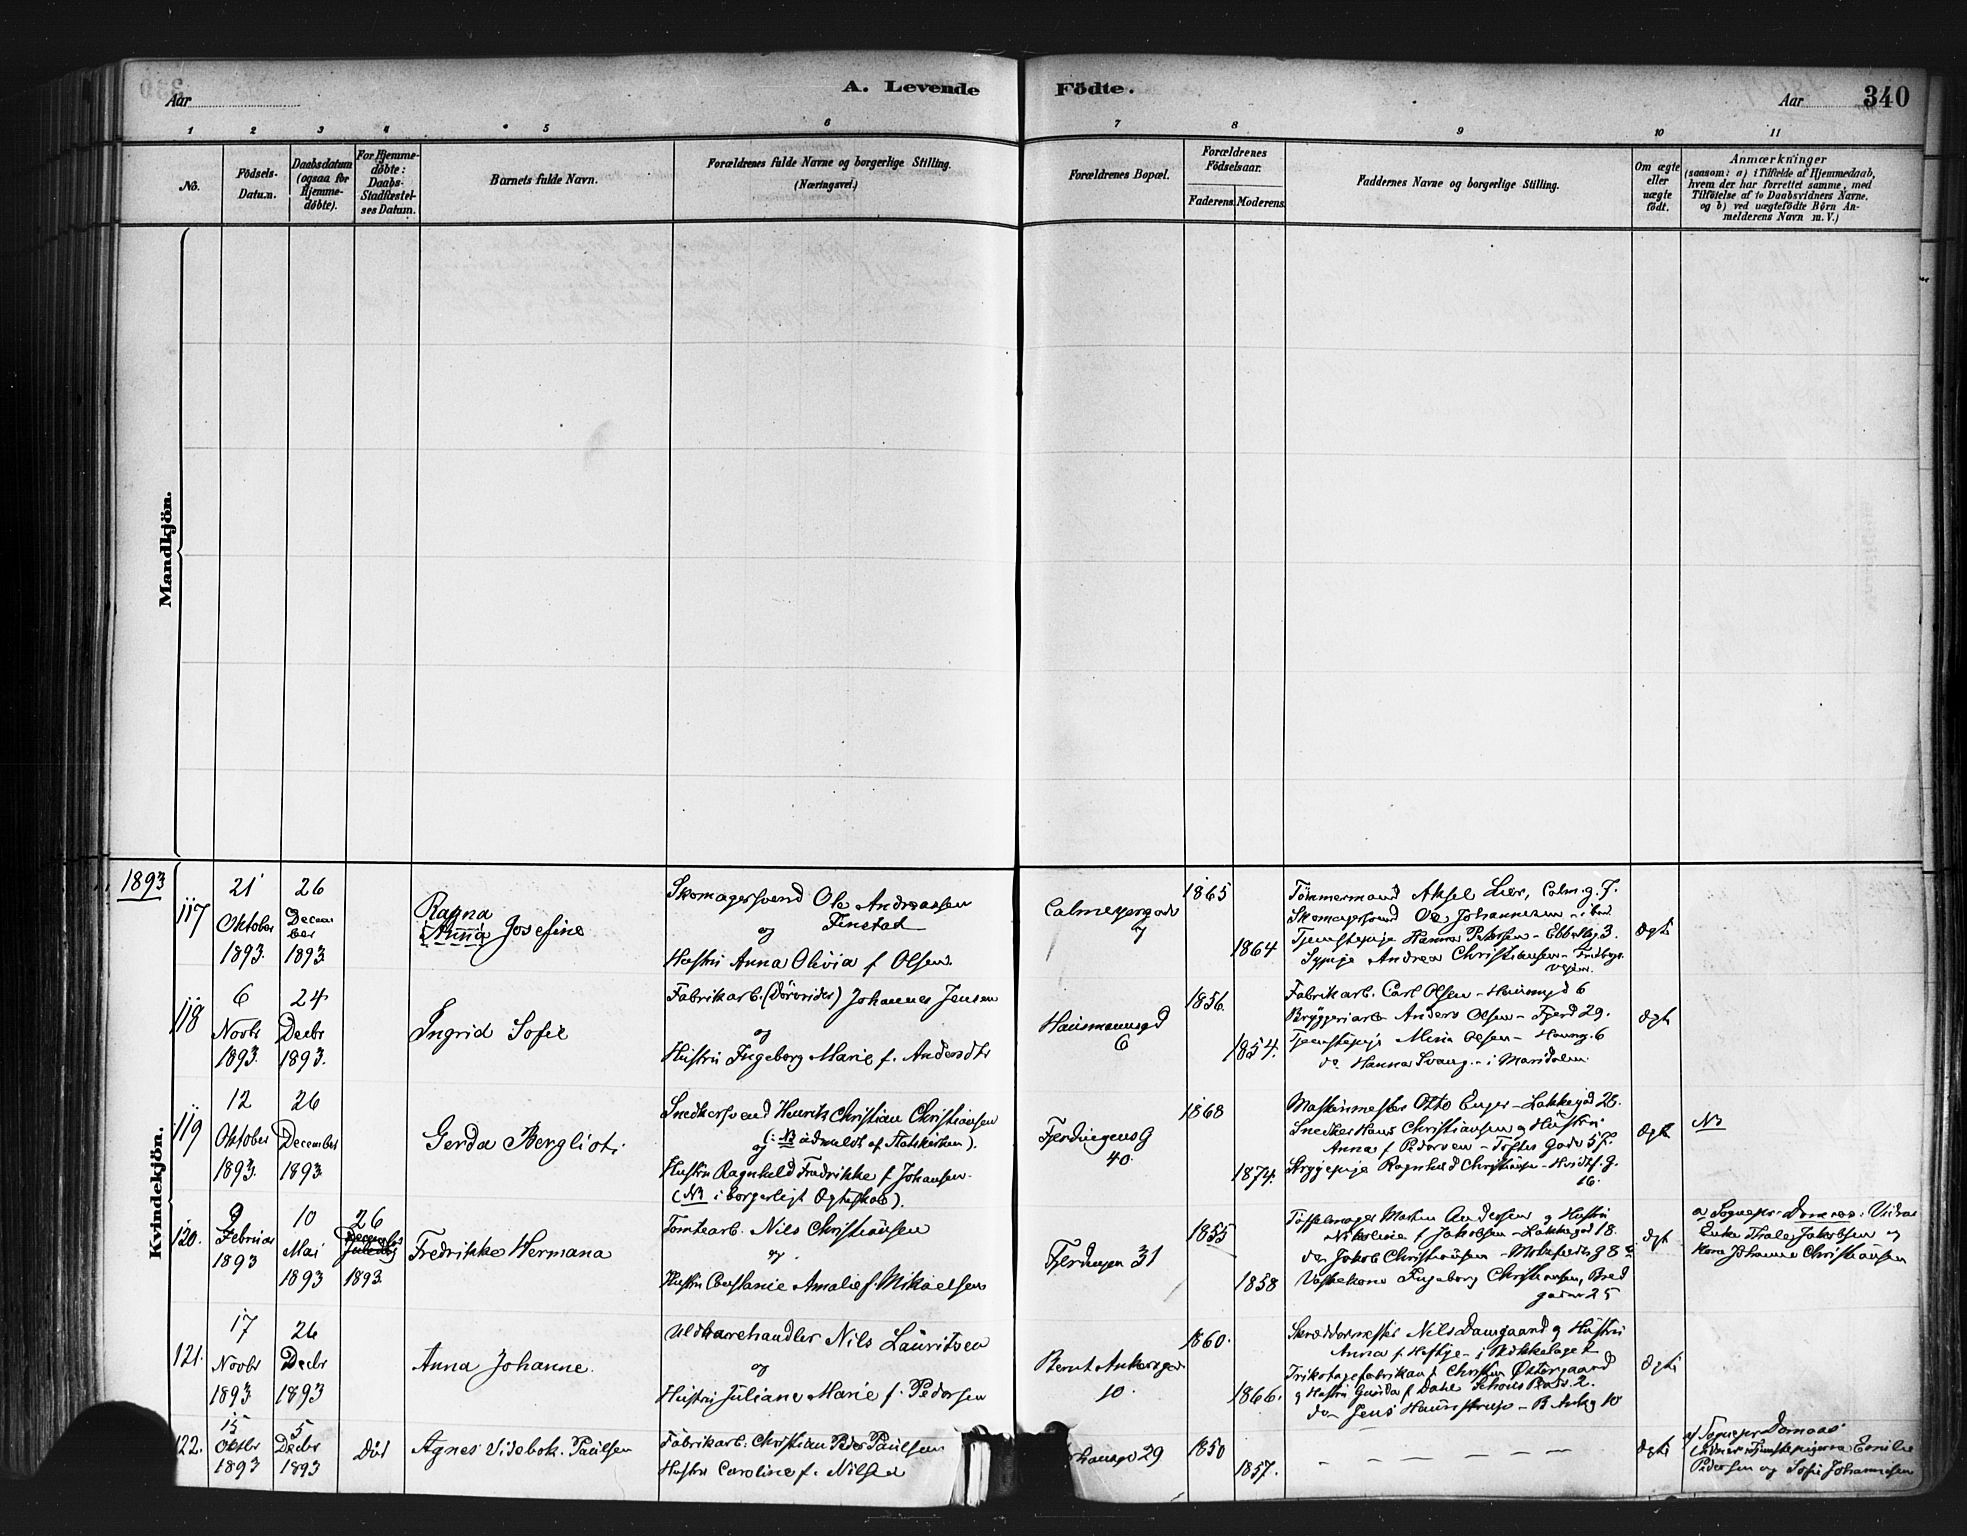 Aar
A. Levende
Födte.
Aar
340
1 2 3 4 5 6 7 8 9 10 11
No.
Födsels-
Datum.
Daabsdatum
(ogsaa for
Hjemme-
döbte).
For Hjemme-
döbte:
Daabs-
Stadfæstel-
ses Datum.
Barnets fulde Navn.
Forældrenes fulde Navne og borgerlige Stilling.
(Næringsvei.)
Forældrenes Bopæl.
Forældrenes
Födselsaar.
Faderens.
Moderens.
Faddernes Navne og borgerlige Stilling.
Om ægte
eller
uægte
født.
Anmærkninger
(saasom: a) i Tilfælde af Hjemmedaab,
hvem der har forrettet samme, med
Tilföielse af to Daabsvidners Navne,
og b) ved uægtefödte Börn An-
melderens Navn m. V.)
Mandkjön.
Kvindekjön.
1893
117
21
Oktober
1893.
26
Decem
ber
1893
Ragna
Anna Josefine
Skomagersvend Ole Andreassen
Finstad
og
Hustru Anna Olivia f. Olsen
Calmeyergade
7
1865
1864
Tömmermand Aksel Lier, Calm.g. 7.
Skomagersvend Ole Johannesen - ibid
Tjenestepige Hanna Petersen - Ebbellsg. 3.
Sypige Andrea Christiansen -
Ægte
118
6
Novbr
1893.
24
Decbr
1893.
Ingrid Sofie
Fabrikarb. Johannes Jensen
og
Hustru Ingeborg Marie f. Andersdtr
Hausmannsgd
6
1856.
1854.
Fabrikarb. Carl Olsen - Hausmgd 6
Bryggeriarb Anders Olsen - Fjerd 29.
Tjenestepige Mina Olsen - Hausmg. 6
do. Hanna Svang - i Maridalen
Ægte
119
12
Oktober
1893.
26
December
1893
Gerda Bergliot
Snedkersvend Henrik Christian Christiansen
og (: NB udmeldt af Statskirken).
Hustru Ragnhild Fredrikke f. Johansen.
(NB i borgerligt Ægteskab).
Fjerdingens G
40.
1868
1874.
Maskinmester Otto Enger - Lakkegad 28.
Snedker Hans Christiansen og Hustru
Anna f. Pedersen - Toftes Gade
Strygepige Ragnhild Christiansen -
16.
Ægte
NB
120.
9
Februar
1893
10
Mai
1893
26
December
1893.
Fredrikke Hermana
Tomtearb. Nils Christiansen
og
Hustru Constance Amalie f. Mikaelsen
Fjerdingen 31
1855
1858
Töffelmager Martin Andersen og Hustru
Nikoline f. Jakobsen - Lakkegad 18.
do Jakob Christiansen -
Vaskekone Ingeborg Christiansen, Bred
gaden 25
Ægte
Jakobsen og
Kone Johanne Christiansen
121.
17
Novbr
1893
26
Decbr
1893
Anna Johanne.
Uldvarehandler Nils Lauritsen
og
Hustru Juliane Marie f. Pedersen
Bernt Ankersgade
10.
1860.
1866.
Skræddermester Nils Damgaard og Hustru
Trikotagefabrikant Christen Östergaard
do Jens Haunstrup - B. Ankg 10
Ægte
122.
15
Oktbr
1893
5
Decbr
1893
Död
Agnes Videbek Paulsen
Fabrikarb. Christian Peder Paulsen
Hustru Caroline f. Nilsen
29
1850
1857.
— — — — —
Ægte
Tjenestepigerne Emilie
Pedersen og Sofie Johannesen